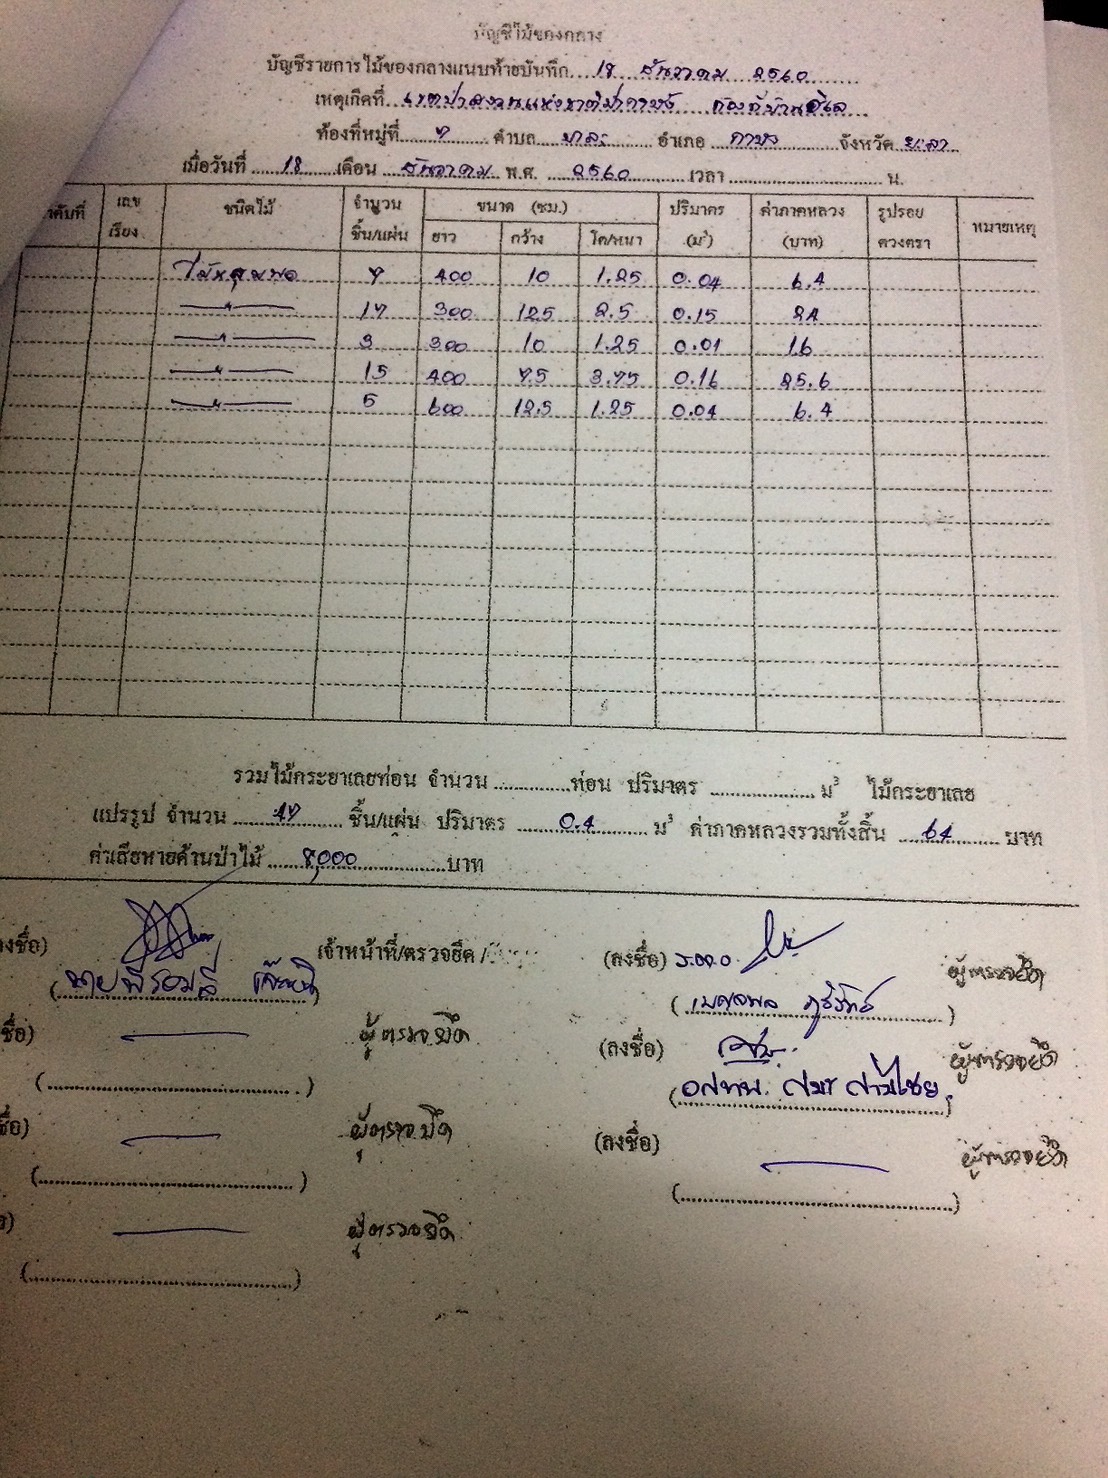 บัญชีไม้ของกลาง
บัญชีรายการไม้ของกลางแนบท้ายบันทึก 18 ธันวาคม 2560
เหตุเกิดที่ เขตป่าสงวนแห่งชาติป่ากาบัง ท้องที่บ้าน
ท้องที่หมู่ที่ 7 ตำบล บาละ อำเภอ กาบัง จังหวัด ยะลา
เมื่อวันที่ 18 เดือน ธันวาคม พ.ศ. 2560 เวลา น.
ลำดับที่ เลขเรียง ชนิดไม้ จำนวน ชิ้น/แผ่น ขนาด (ซม.) ปริมาตร (ม³) ค่าภาคหลวง (บาท) รูปรอยดวงตรา หมายเหตุ
ยาว กว้าง โต/หนา
ไม้หลุมพอ 7 400 10 1.25 0.04 6.4
—"— 17 300 12.5 2.5 0.15 24
—"— 3 300 10 1.25 0.01 16
—"— 15 400 7.5 3.75 0.16 25.6
—"— 5 600 12.5 1.25 0.04 6.4
รวมไม้กระยาเลยท่อน จำนวน ท่อน ปริมาตร ม³ ไม้กระยาเลย
แปรรูป จำนวน 47 ชิ้น/แผ่น ปริมาตร 0.4 ม³ ค่าภาคหลวงรวมทั้งสิ้น 64 บาท
ค่าเสียหายด้านป่าไม้ 8,000 บาท
(ลงชื่อ) เจ้าหน้าที่/ตรวจยึด/ (ลงชื่อ) ร.ต.อ. ผู้ตรวจยึด
(นาย)
(ลงชื่อ) ผู้ตรวจยึด (ลงชื่อ) ผู้ตรวจยึด
(อส.ทพ.)
(ลงชื่อ) ผู้ตรวจยึด (ลงชื่อ) ผู้ตรวจยึด
ผู้ตรวจยึด